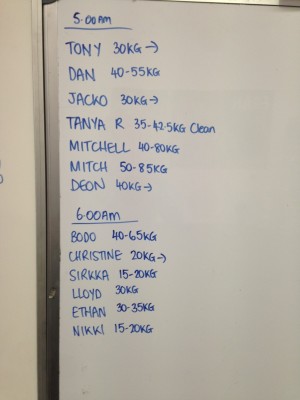 5:00am
TONY 30KG →
DAN 40-55KG
JACKO 30KG →
TANYA R 35-42.5KG Clean
MITCHELL 40-80KG
MITCH 50-85KG
DEON 40KG →
6:00AM
BODO 40-65KG
CHRISTINE 20KG →
SIRKKA 15-20KG
LLOYD 30KG
ETHAN 30-35KG
NIKKI 15-20KG